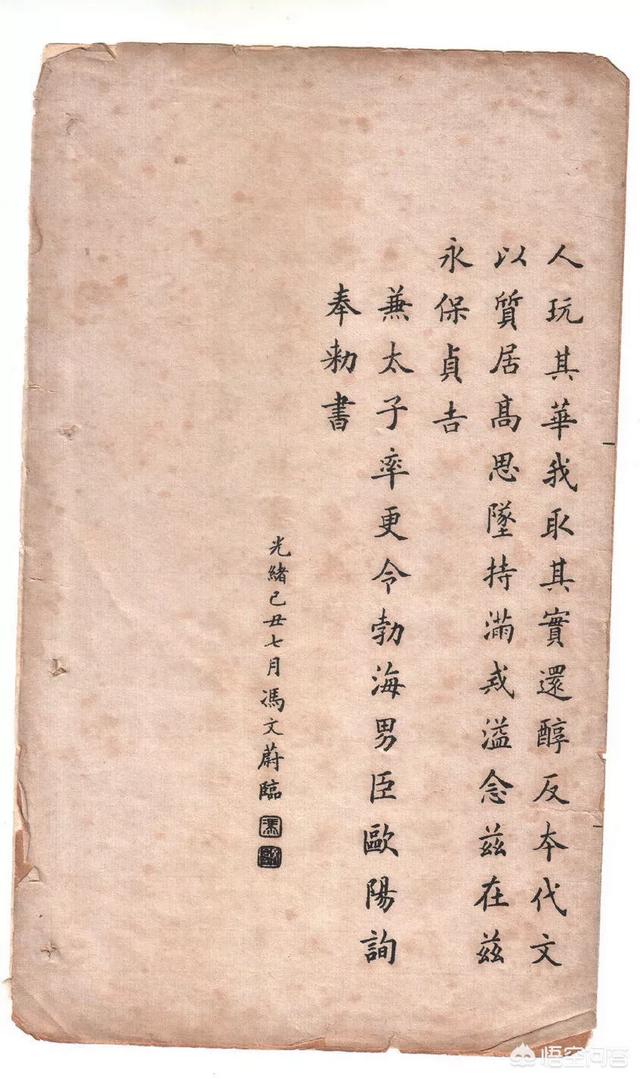 人玩其華我取其實還醇反本代文
以質居高思墜持滿戒溢念茲在茲
永保貞吉
兼太子率更令勃海男臣歐陽詢
奉勑書
光緒己丑七月馮文蔚臨
悟空问答